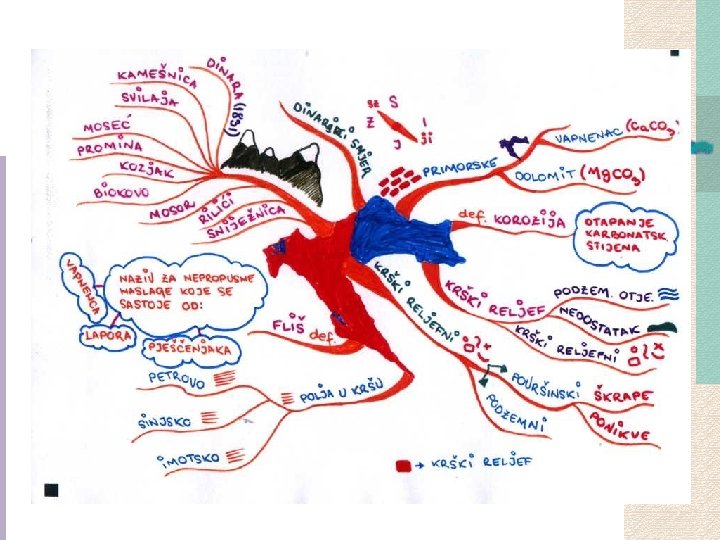 KAMEŠNICA
SVILAJA
MOSEĆ
PROMINA
KOZJAK
BIOKOVO
MOSOR
RILIĆI
SNIJEŽNICA
DINARA (1831)
DINARSKI SMJER
SZ S
Z I
J JI
PRIMORSKE
VAPNENAC (CaCO3)
DOLOMIT (MgCO3)
def. KOROZIJA
OTAPANJE
KARBONATSK.
STIJENA
KRŠKI RELJEF
PODZEM. OTJE.
NEDOSTATAK
KRŠKI RELJEFNI
KRŠKI RELJEFNI
POVRŠINSKI
ŠKRAPE
PONIKVE
PODZEMNI
FLIŠ def.
NAZIV ZA NEPROPUSNE
NASLAGE KOJE SE
SASTOJE OD:
VAPNENCA
LAPORA
PJEŠČENJAKA
POLJA U KRŠU
PETROVO
SINJSKO
IMOTSKO
→ KRŠKI RELJEF